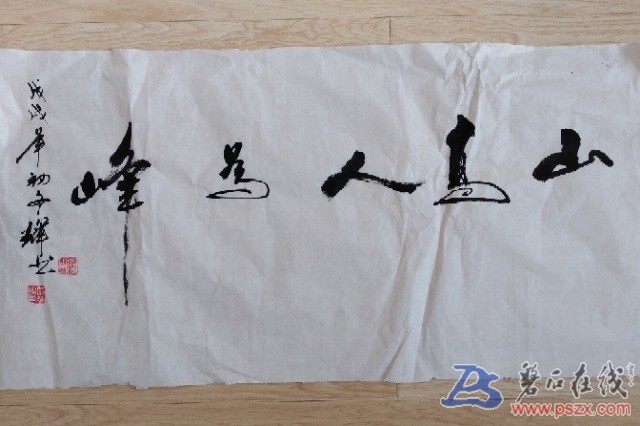 山高人是峰
戊戌年初冬辉书
磐石在线
www.pszx.com